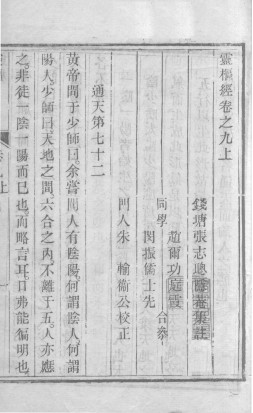 靈樞經卷之九上
錢塘張志聰隱菴集註
同學
趙爾功庭霞
閔振儒士先
合參
門人朱輪衞公校正
通天第七十二
黃帝問于少師曰余嘗聞人有陰陽何謂陰人何謂
陽人少師曰天地之間六合之內不離于五人亦應
之非徒一陰一陽而已也而略言耳口弗能徧明也
卷九上